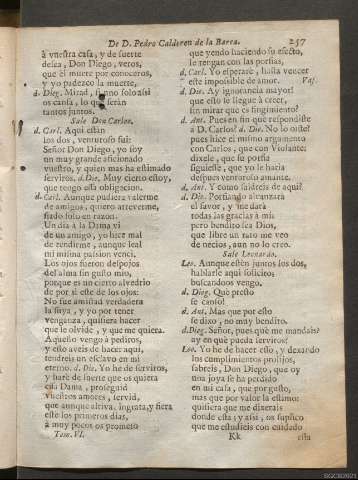 De D. Pedro Calderon de la Barca. 257
à vuestra casa, y de suerte
desea, Don Diego, veros,
que èl muere por conoceros,
y yo padezco la muerte.
d. Dieg. Mirad, si uno solo assi
os cansa, lo què seràn
tantos juntos.
Sale Don Carlos.
d. Carl. Aqui estàn
los dos, venturoso fui:
Señor Don Diego, yo soy
un muy grande aficionado
vuestro, y quien mas ha estimado
serviros. d. Die. Muy cierto estoy,
que tengo essa obligacion.
d. Carl. Aunque pudiera valerme
de amigos, quiero atreverme,
fiado solo en razon.
Un dia à la Dama vi
de un amigo, yo hice mal
de rendirme, aunque leal
mi misma passion vencì.
Los ojos fueron despojos
del alma sin gusto mio,
porque es un cierto alvedrio
de por sì este de los ojos:
No fue amistad verdadera
la suya, y yo por tener
venganza, quisiera hacer
que le olvide, y que me quiera.
Aquesto vengo à pediros,
y esto aveis de hacer aqui,
tendreis un esclavo en mì
eterno. d. Die. Yo he de serviros,
y harè de suerte que os quiera
essa Dama, proseguid
vuestros amores, servid,
que aunque altiva, ingrata, y fiera
estè los primeros dias,
à muy pocos os prometo
Tom. VI.
que yendo haciendo su efecto,
le tengan con las porfias,
d. Carl. Yo esperarè, hasta vencer
este impossible de amor. Vas.
d. Die. Ay ignorancia mayor!
que esto se llegue à creer,
sin mirar que es fingimiento?
d. Ant. Pues en fin què respondiste
à D. Carlos? d. Die. No lo oiste?
pues hice el mismo argumento
con Carlos, que con Violante:
dixele, que su porfia
siguiesse, que yo le haria
despues venturoso amante.
d. Ant. Y como saldreis de aqui?
d. Die. Porfiando alcanzarà
el favor, y me darà
todas las gracias à mì;
pero bendito sea Dios,
que libre un rato me veo
de necios, aun no lo creo.
Sale Leonardo.
Leo. Aunque estèn juntos los dos,
hablarle aqui solicito;
buscandoos vengo.
d. Dieg. Què presto
se cansò!
d. Ant. Mas que por esto
se dixo, no muy bendito.
d. Dieg. Señor, pues què me mandais?
ay en què pueda serviros?
Leo. Yo he de hacer esso, y dexando
los cumplimientos prolijos,
sabreis, Don Diego, que oy
una joya se ha perdido
en mi casa, que por gusto,
mas que por valor la estimo:
quisiera que me dixerais
donde està; y assi, os suplico
que me estudieis con cuidado
Kk esta